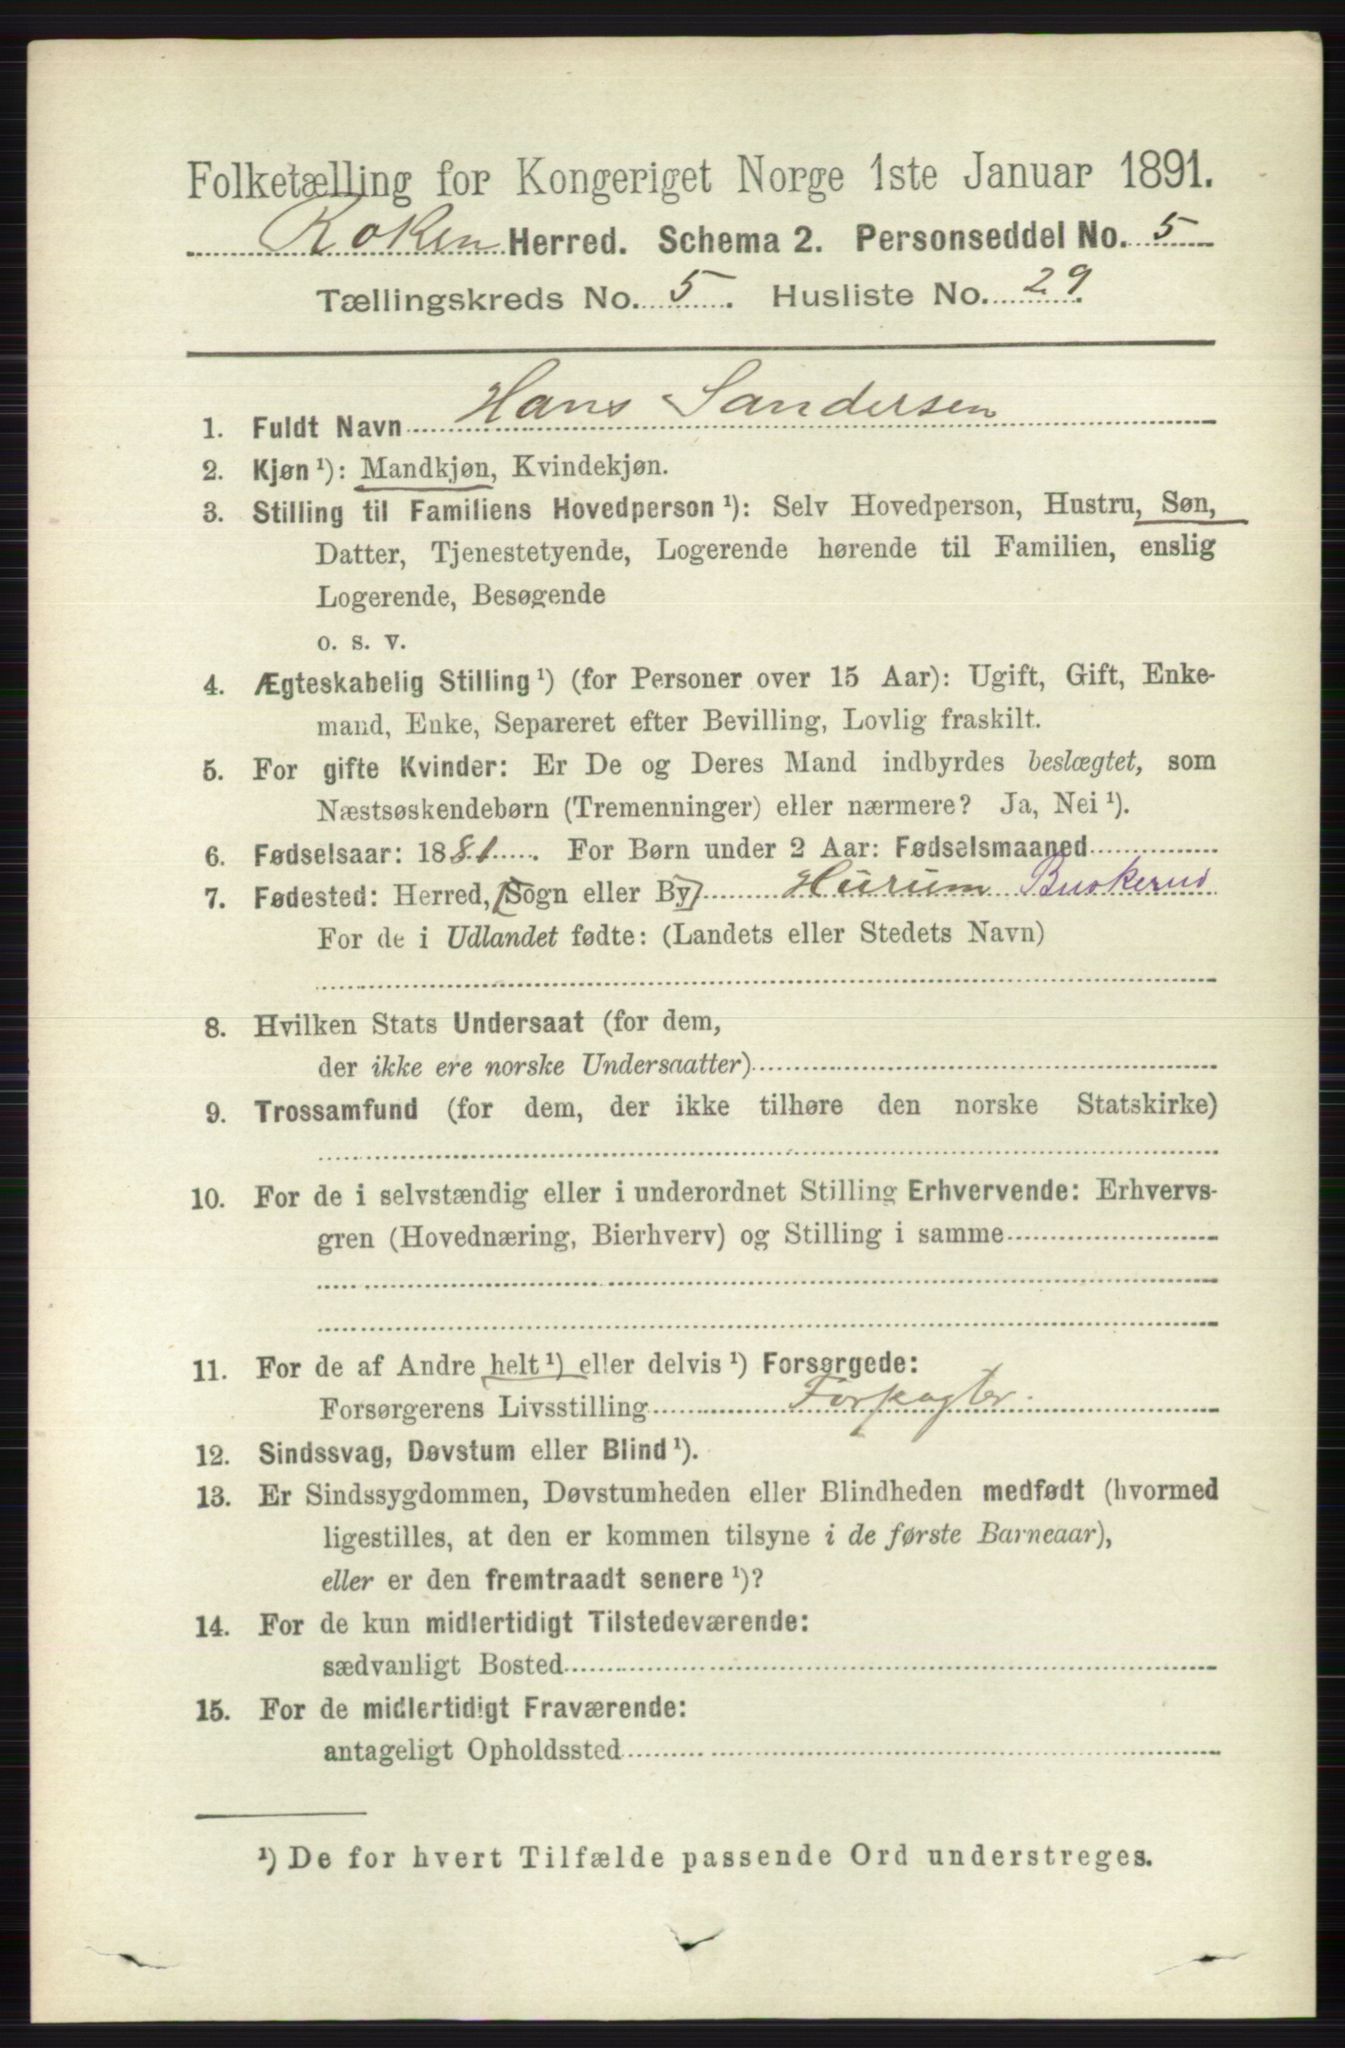 Folketælling for Kongeriget Norge 1ste Januar 1891.
Røken Herred. Schema 2. Personseddel No. 5
Tællingskreds No. 5. Husliste No. 29.
1. Fuldt Navn Hans Sandersen
2. Kjøn ¹): Mandkjøn, Kvindekjøn.
3. Stilling til Familiens Hovedperson ¹): Selv Hovedperson, Hustru, Søn,
Datter, Tjenestetyende, Logerende hørende til Familien, enslig
Logerende, Besøgende
o. s. v.
4. Ægteskabelig Stilling ¹) (for Personer over 15 Aar): Ugift, Gift, Enke-
mand, Enke, Separeret efter Bevilling, Lovlig fraskilt.
5. For gifte Kvinder: Er De og Deres Mand indbyrdes beslægtet, som
Næstsøskendebørn (Tremenninger) eller nærmere? Ja, Nei ¹).
6. Fødselsaar: 1881. For Børn under 2 Aar: Fødselsmaaned
7. Fødested: Herred, [Sogn eller By] Hurum Buskerud
For de i Udlandet fødte: (Landets eller Stedets Navn)
8. Hvilken Stats Undersaat (for dem,
der ikke ere norske Undersaatter)
9. Trossamfund (for dem, der ikke tilhøre den norske Statskirke)
10. For de i selvstændig eller i underordnet Stilling Erhvervende: Erhvervs-
gren (Hovednæring, Bierhverv) og Stilling i samme
11. For de af Andre helt ¹) eller delvis ¹) Forsørgede:
Forsørgerens Livsstilling Forpagter.
12. Sindssvag, Døvstum eller Blind ¹).
13. Er Sindssygdommen, Døvstumheden eller Blindheden medfødt (hvormed
ligestilles, at den er kommen tilsyne i de første Barneaar),
eller er den fremtraadt senere ¹)?
14. For de kun midlertidigt Tilstedeværende:
sædvanligt Bosted
15. For de midlertidigt Fraværende:
antageligt Opholdssted
¹) De for hvert Tilfælde passende Ord understreges.